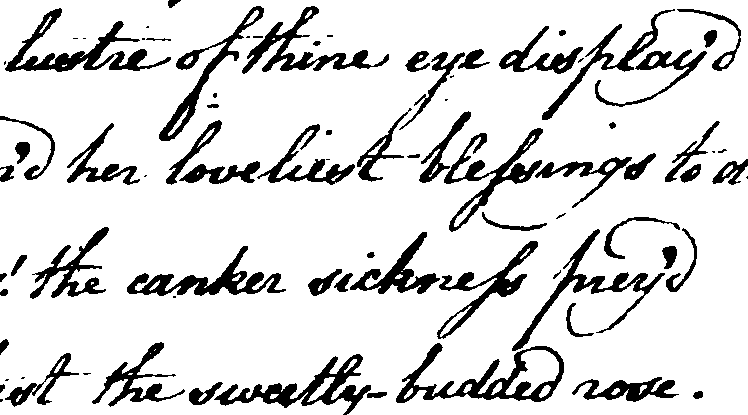 lustre of thine eye display'd
her loveliest blessings to
the canker sickness prey'd
the sweetly-budded rose.